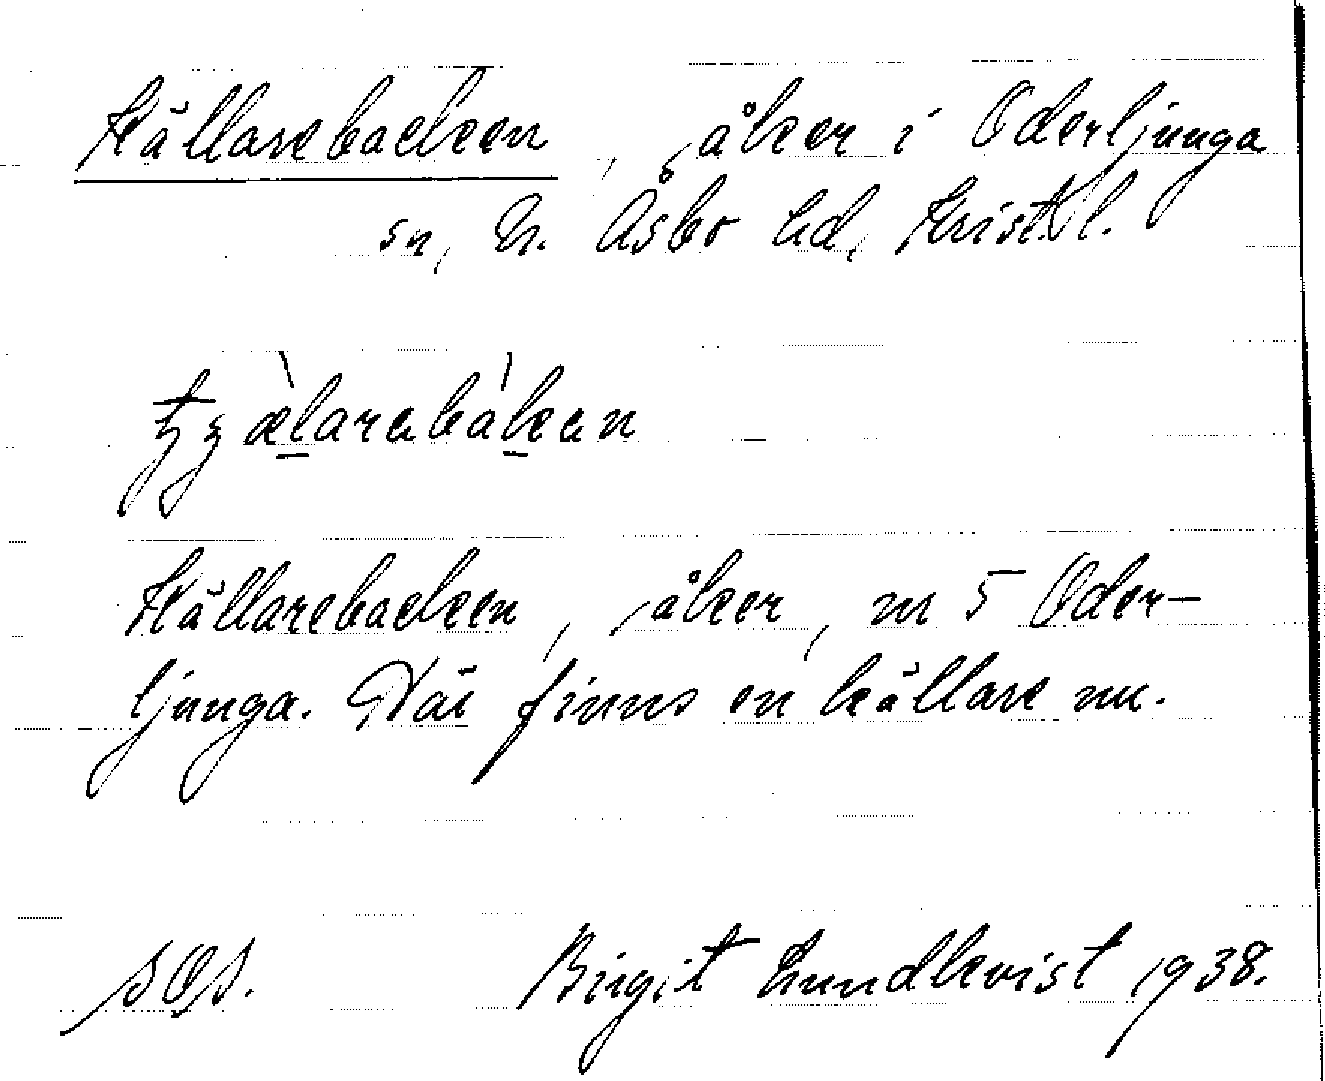 Källarebacken, åker i Oderljunga
sn, N. Åsbo hd, Krist. l.
Källarebacken, åker, nr 5 Oder-
ljunga. Här finns en källare nu.
SOS. Birgit Lundkvist 1938.